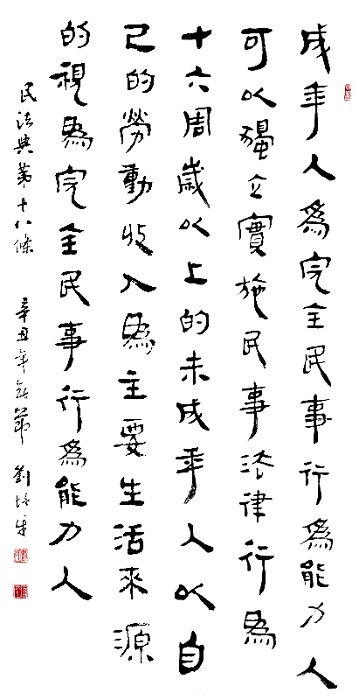 成年人為完全民事行為能力人
可以獨立實施民事法律行為
十六周歲以上的未成年人以自
己的勞動收入為主要生活來源
的視為完全民事行為能力人
民法典第十八條 辛丑年 劉